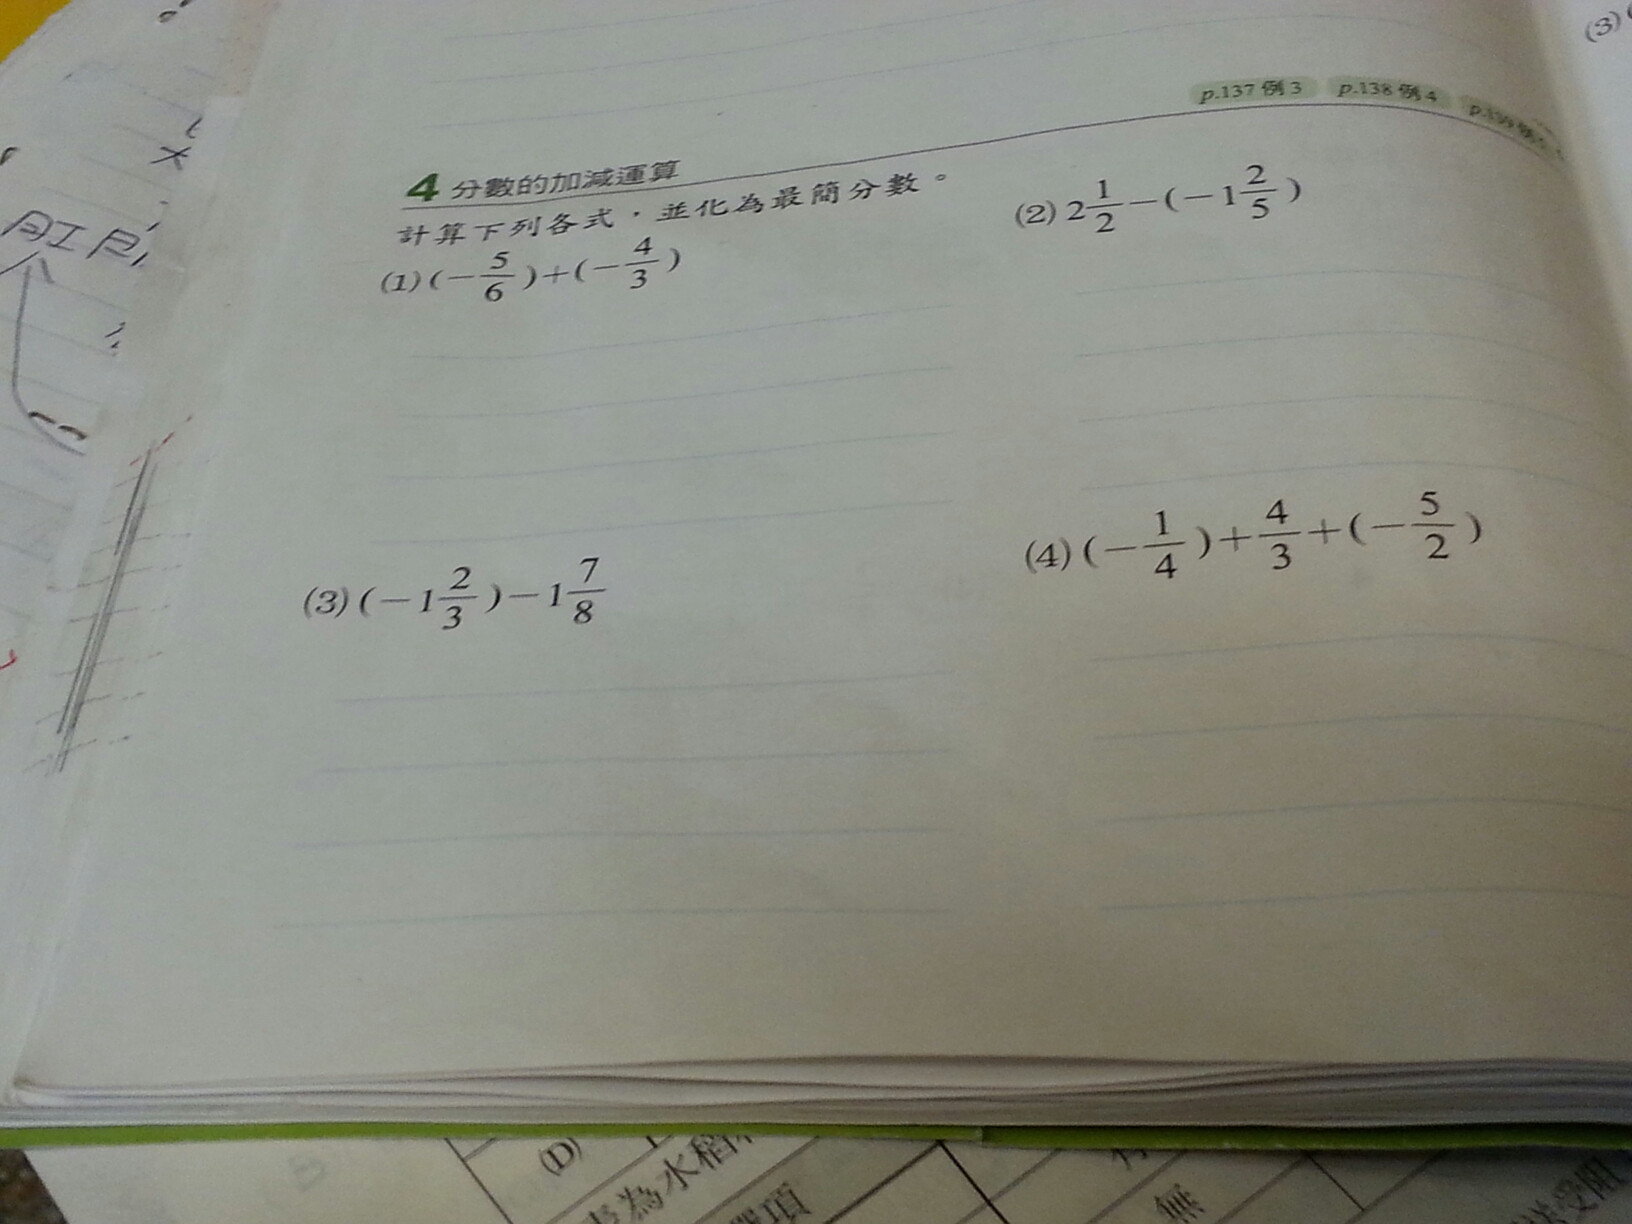 (3)
p.137 例 3 p.138 例 4
4 分數的加減運算
計算下列各式，並化為最簡分數。
(1) (-5/6)+(-4/3)
(2) 2 1/2-(-1 2/5)
(3) (-1 2/3)-1 7/8
(4) (-1/4)+4/3+(-5/2)
(D)
為水稻
項
無
受阻